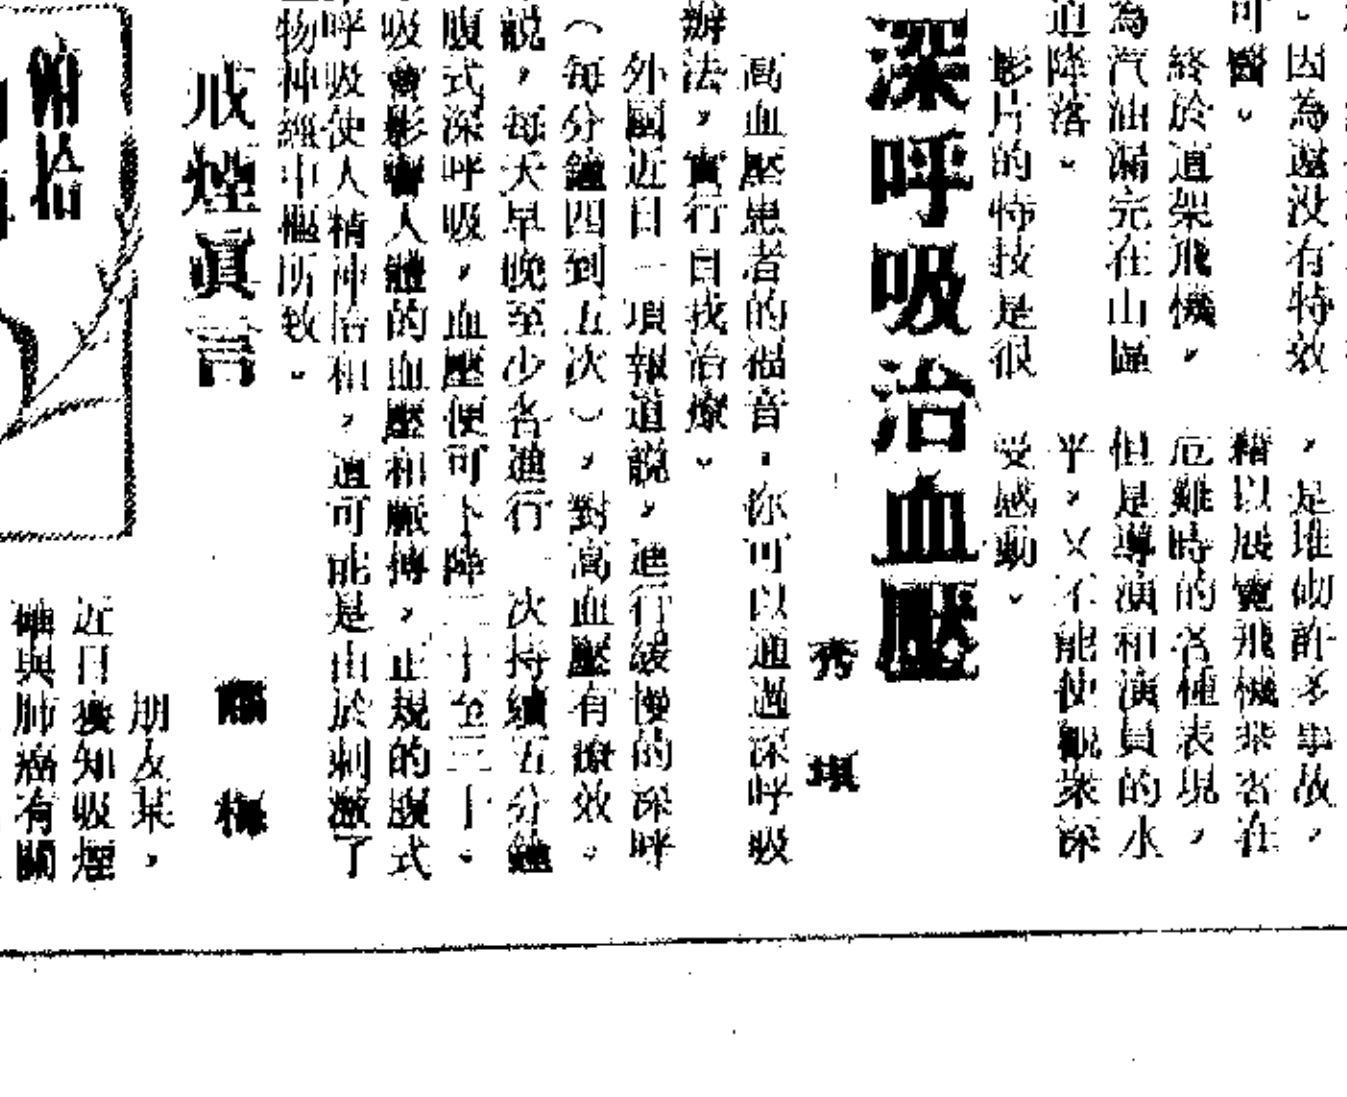 ，因為還没有特效
可醫。
終於這架飛機，
為汽油漏完在山區
道降落。
影片的特技是很
，是堆砌許多事故，
藉以展覽飛機乘客在
危難時的各種表現，
但是導演和演員的水
平，又不能使觀衆深
受感動。
深呼吸治血壓
秀琪
高血壓患者的福音，你可以通過深呼吸
辦法，實行自我治療。
外國近日一項報道說，進行緩慢的深呼
（每分鐘四到五次），對高血壓有療效。
說，每天早晚至少各進行一次持續五分鐘
腹式深呼吸，血壓便可下降二十至三十。
吸會影響人體的血壓和脈搏，正規的腹式
呼吸使人精神怡和，這可能是由於刺激了
物神經中樞所致。
戒煙眞言
梅
朋友某，
近日獲知吸煙
與肺癌有關
拾